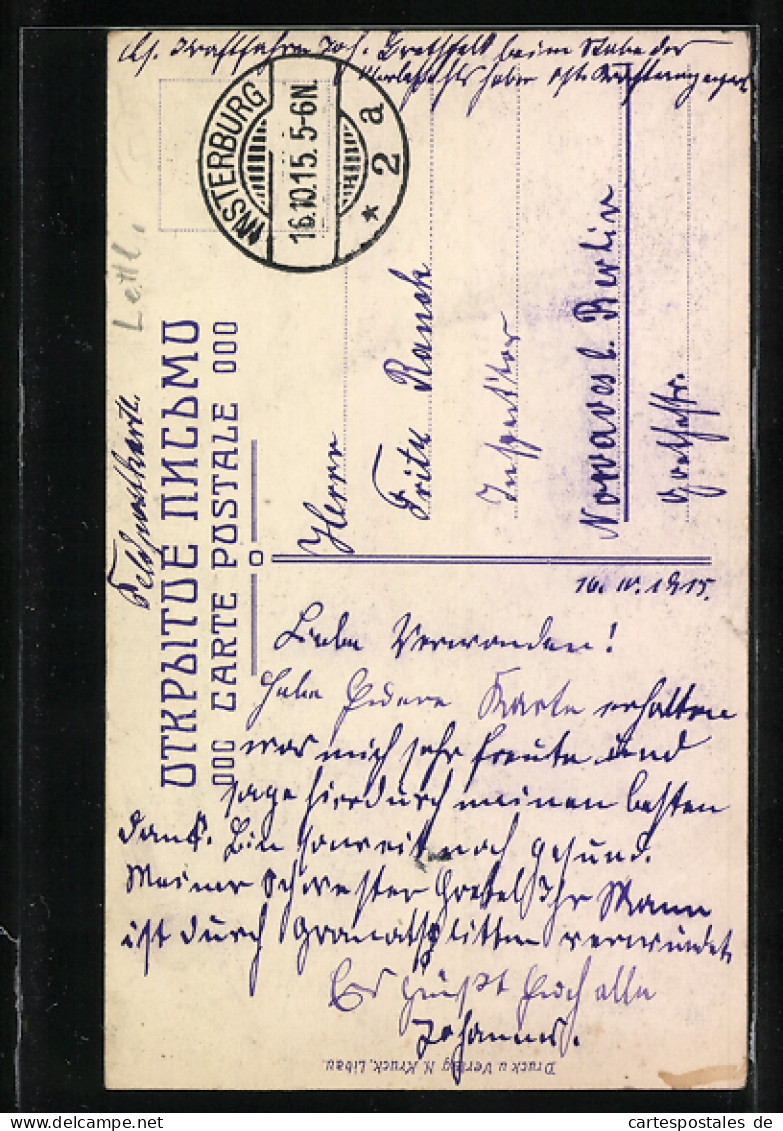 Feldpostkarte.
Lettl.
ОТКРЫТОЕ ПИСЬМО
000 CARTE POSTALE 000
INSTERBURG
16.10.15. 5-6N.
* 2 a
Herrn
Fritz Ranch
Inspektor
Nowawes b. Berlin
Goethestr.
16. 10. 1915.
Liebe Verwanden!
Habe Eure Karte erhalten
was mich sehr freute und
sage hierdurch meinen besten
Dank. Bin soweit noch gesund.
Meiner Schwester Gretel Ihr Mann
ist durch Granatsplitter verwundet
Es grüßt Euch alle
Johannes.
Druck u Verlag N. Kruck, Libau.
www.delcampe.net
cartespostales de